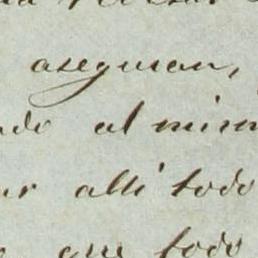 aseguran,
ndo al mism
ar alli todo
que todo